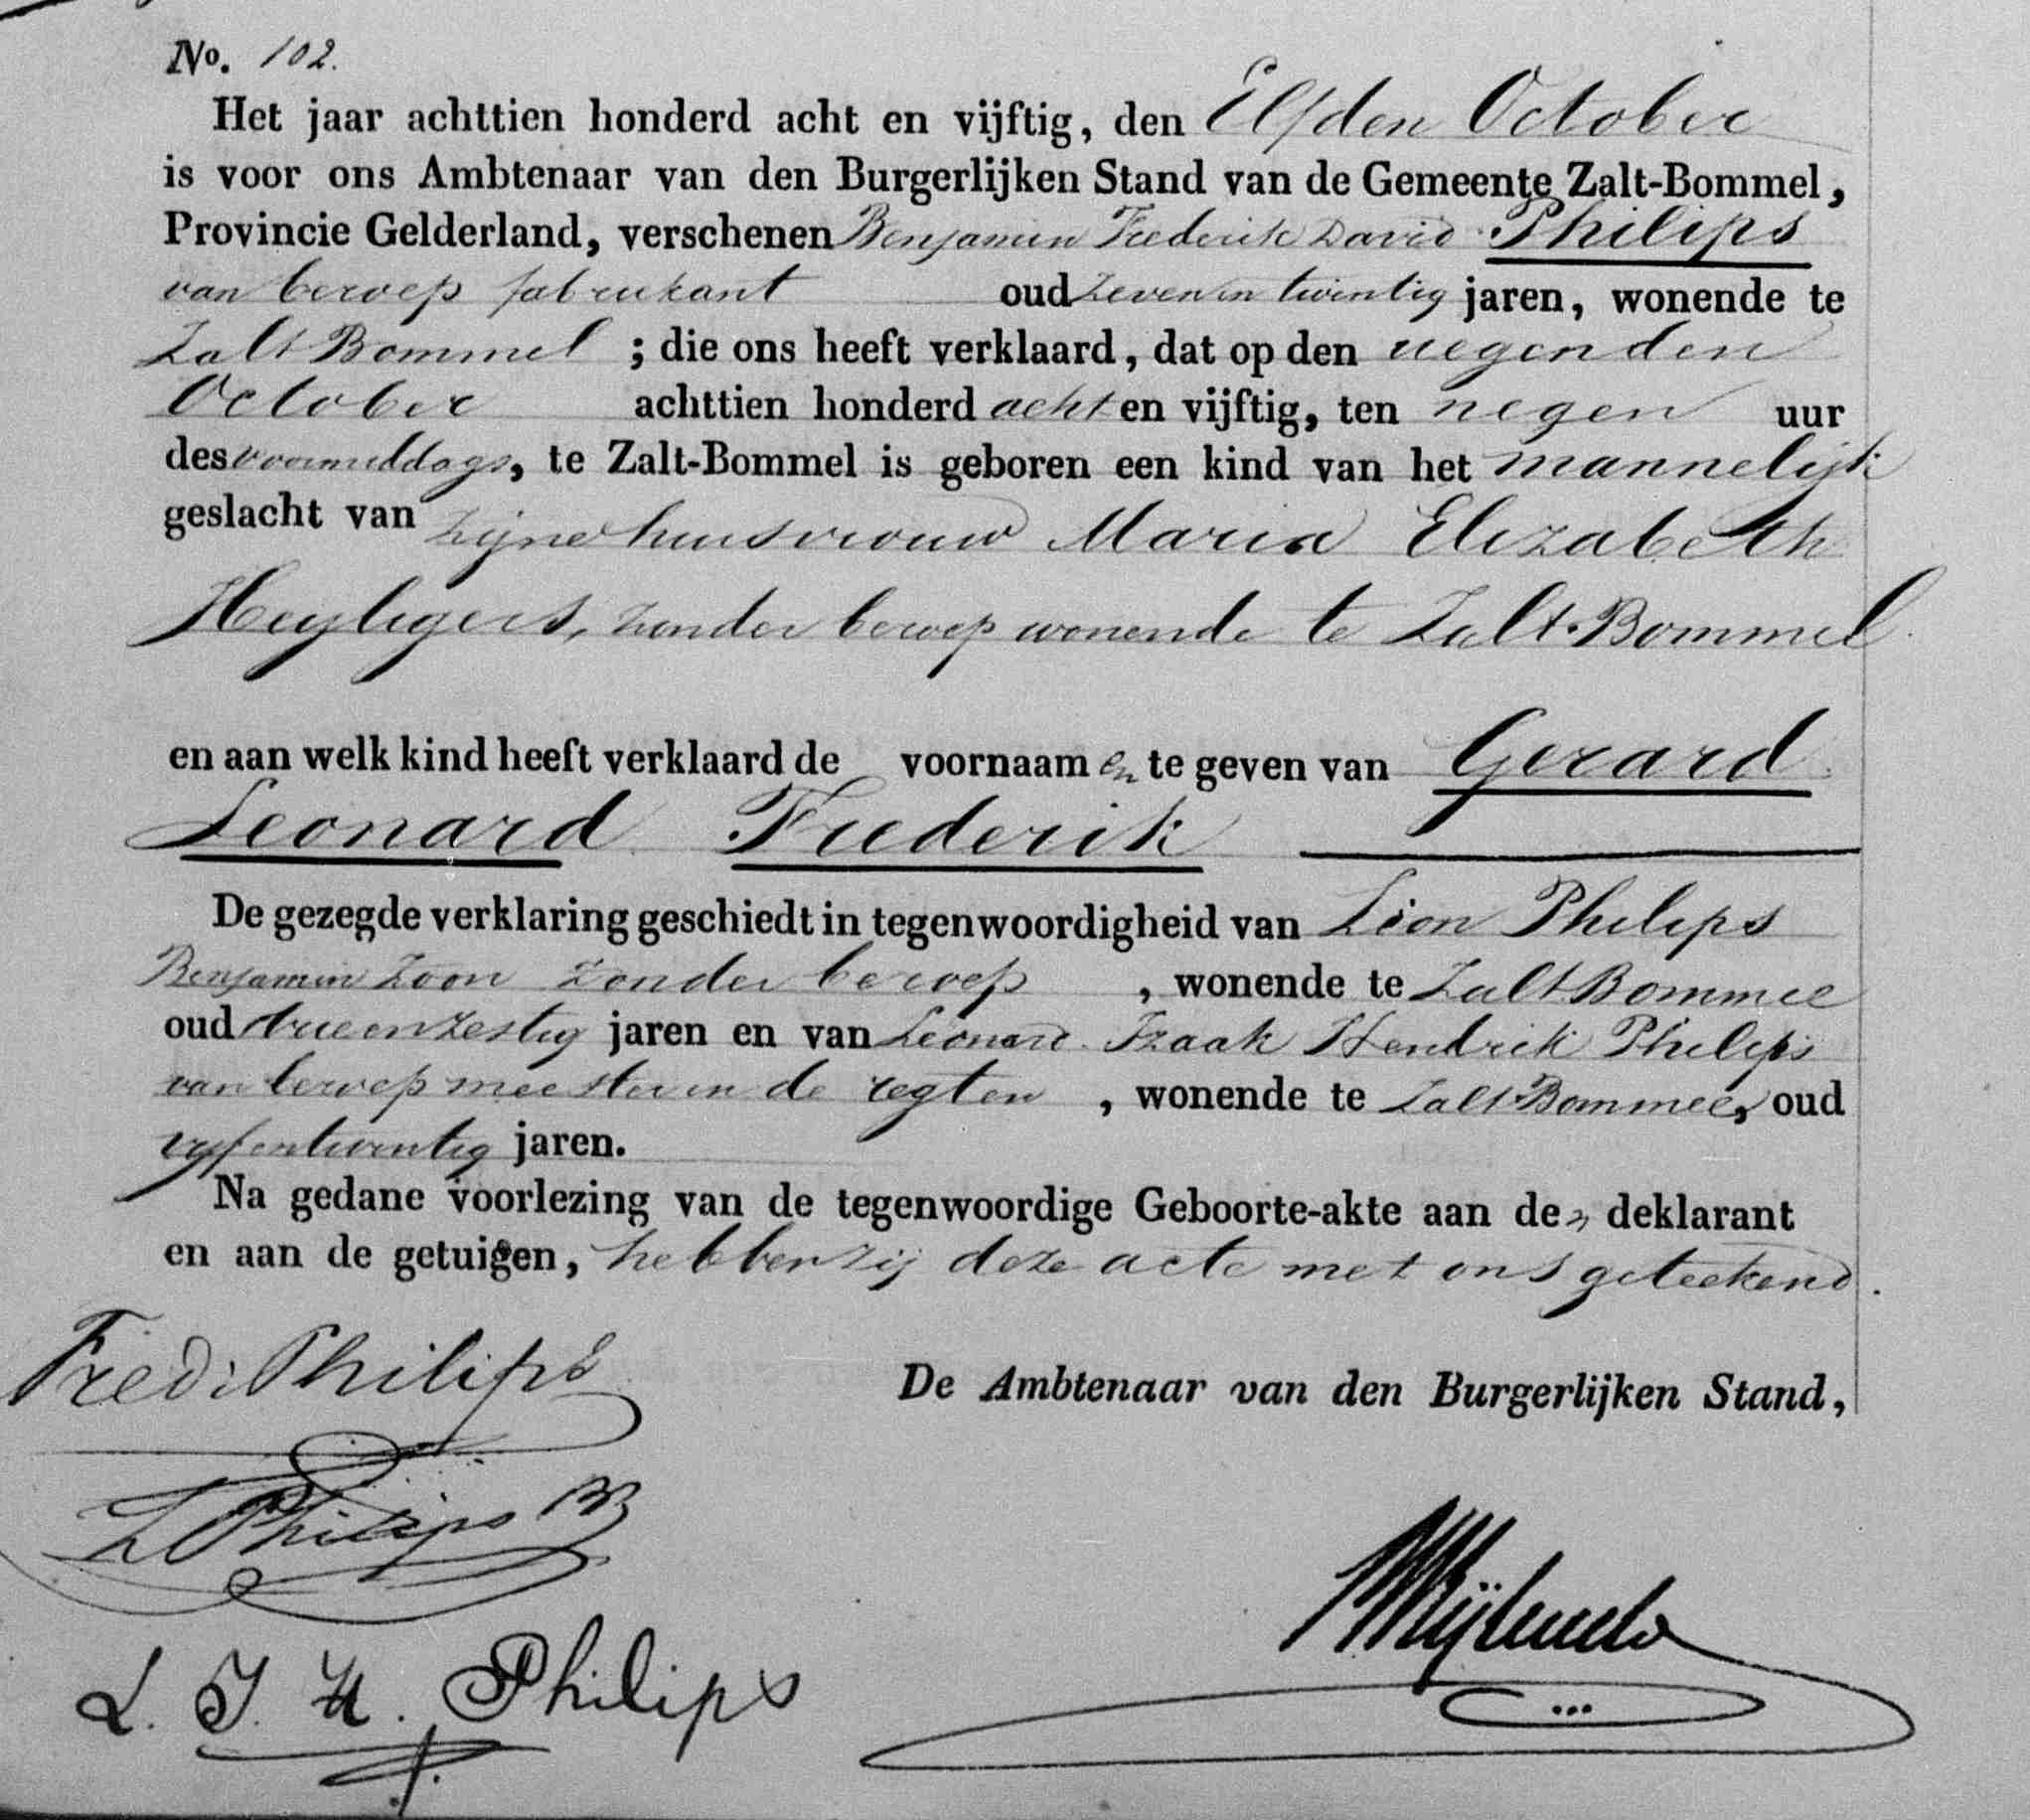 No. 102.
Het jaar achttien honderd acht en vijftig, den Elfden October
is voor ons Ambtenaar van den Burgerlijken Stand van de Gemeente Zalt-Bommel,
Provincie Gelderland, verschenen Benjamin Frederik David Philips
van beroep fabriekant oud zevenentwintig jaren, wonende te
Zalt Bommel ; die ons heeft verklaard, dat op den negenden
October achttien honderd acht en vijftig, ten negen uur
des voormiddags, te Zalt-Bommel is geboren een kind van het mannelijk
geslacht van zijne huisvrouw Maria Elizabeth
Heyligers, zonder beroep wonende te Zalt-Bommel.
en aan welk kind heeft verklaard de voornaam en te geven van Gerard
Leonard Frederik
De gezegde verklaring geschiedt in tegenwoordigheid van Lion Philips
Benjamin Zoon zonder beroep , wonende te Zalt Bommel
oud drieenzestig jaren en van Leonard Izaak Hendrik Philips
van beroep meester in de regten , wonende te Zalt Bommel, oud
vyfentwintig jaren.
Na gedane voorlezing van de tegenwoordige Geboorte-akte aan den deklarant
en aan de getuigen, hebben zij deze acte met ons geteekend.
Fred: Philips
De Ambtenaar van den Burgerlijken Stand,
L Philips BZ
L. I. H. Philips